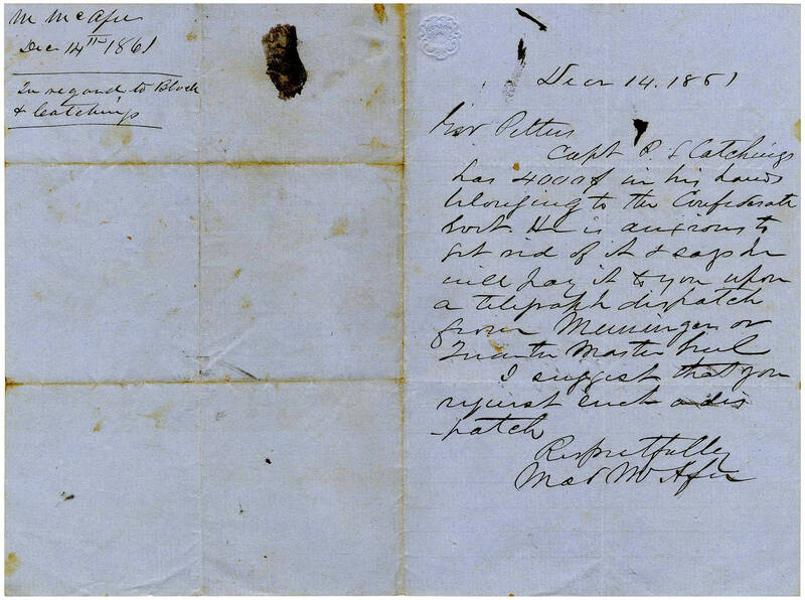 M McAfee
Dec 14th 1861
In regard to Block
& Catchings
Decr 14. 1861
Gov Pettus
Capt P. S Catchings
has 4000$ in his hands
belonging to the Confederate
Govt. He is anxious to
get rid of it & says he
will pay it to you upon
a telegraph dispatch
from Memminger or
Quarter Master Genl
I suggest that you
request such a dis
-patch
Respectfully
Mad McAfee